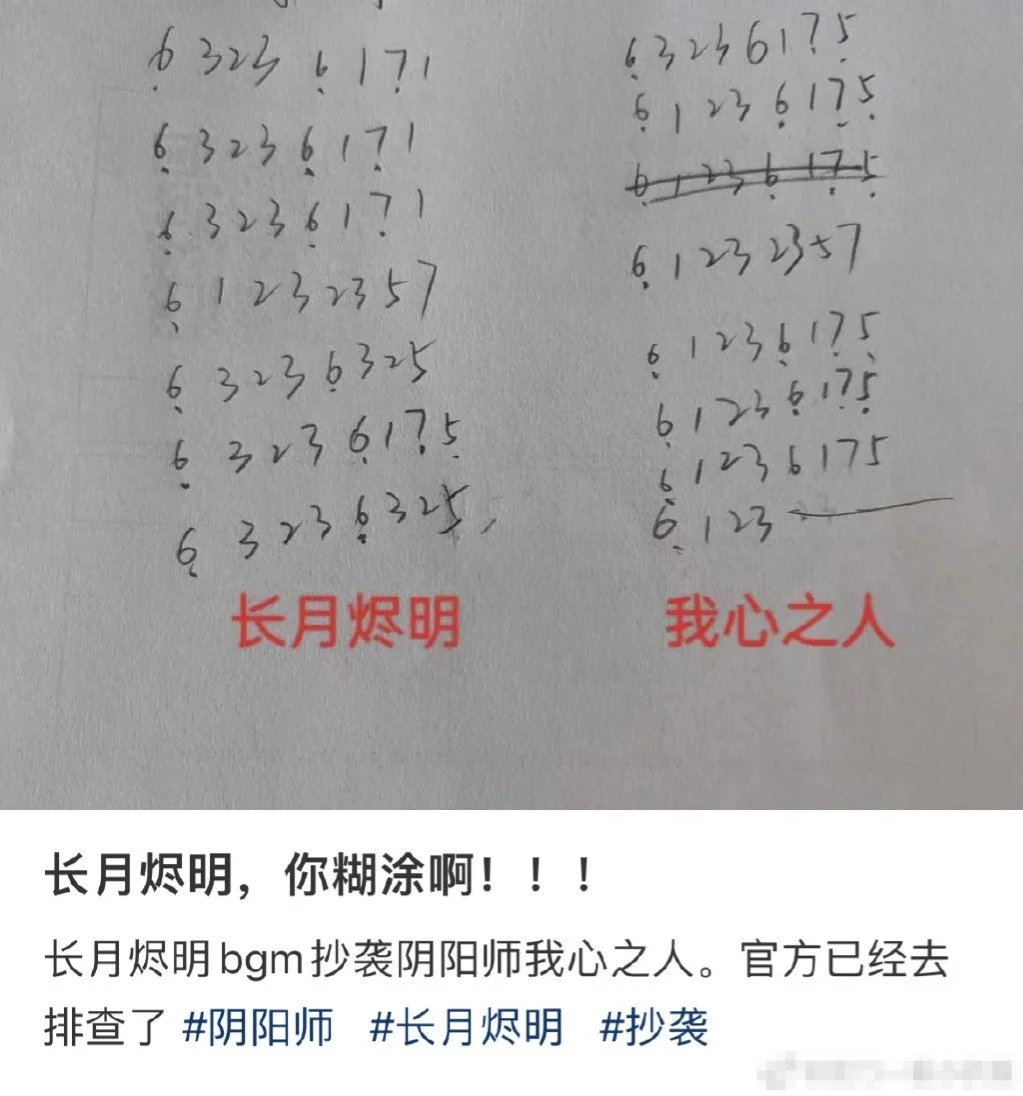 6 3 2 3 6 1 7 1
6 3 2 3 6 1 7 1
6 3 2 3 6 1 7 1
6 1 2 3 2 3 5 7
6 3 2 3 6 3 2 5
6 3 2 3 6 1 7 5
6 3 2 3 6 3 2 5
长月烬明
6 3 2 3 6 1 7 5
6 1 2 3 6 1 7 5
6 1 2 3 6 1 7 5
6 1 2 3 2 3 5 7
6 1 2 3 6 1 7 5
6 1 2 3 6 1 7 5
6 1 2 3 6 1 7 5
6 1 2 3
我心之人
长月烬明，你糊涂啊！！！
长月烬明bgm抄袭阴阳师我心之人。官方已经去
排查了 #阴阳师 #长月烬明 #抄袭